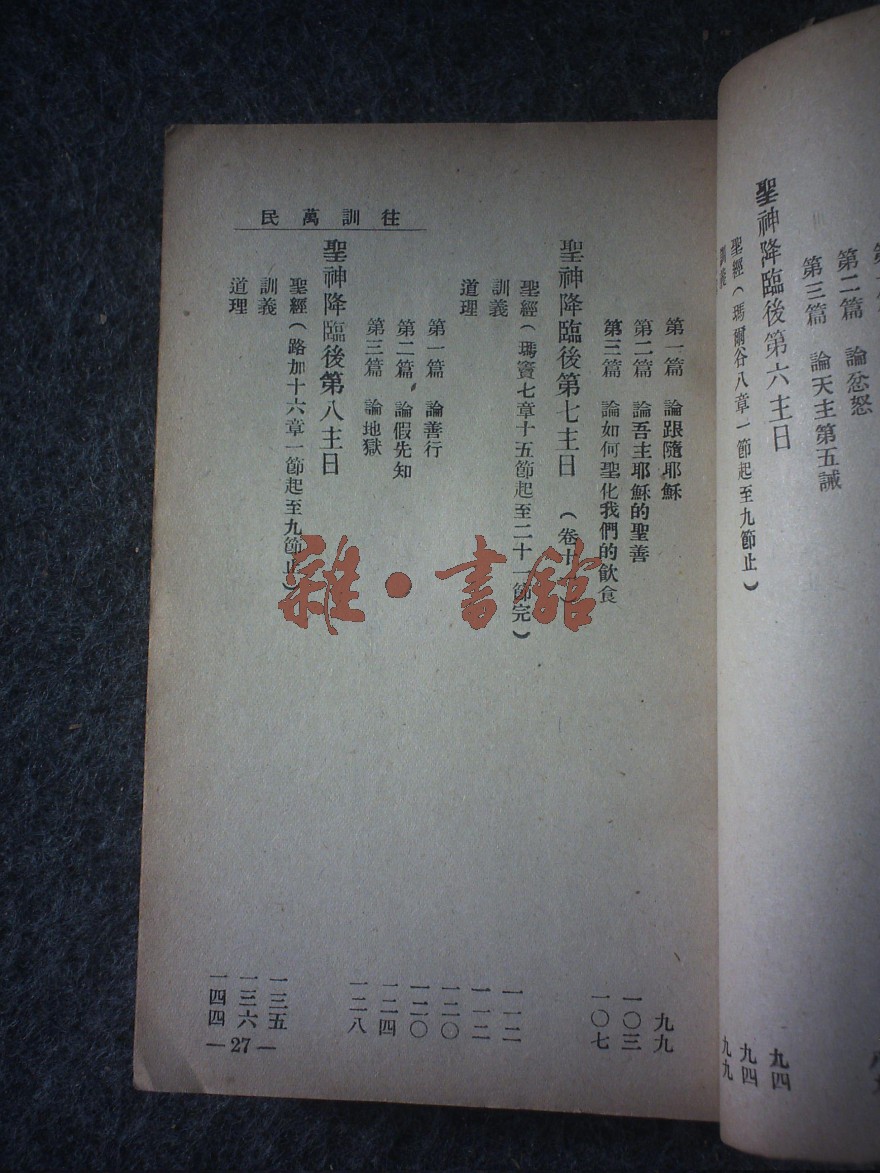 第二篇 論忿怒
第三篇 論天主第五誡
聖神降臨後第六主日
聖經(瑪爾谷八章一節起至九節止)
九四
九四
九九
往訓萬民
第一篇 論跟隨耶穌 九九
第二篇 論吾主耶穌的聖善 一〇三
第三篇 論如何聖化我們的飲食 一〇七
聖神降臨後第七主日 (卷十)
聖經(瑪竇七章十五節起至二十一節完) 一一二
訓義 一一二
道理 一二〇
第一篇 論善行 一二〇
第二篇 論假先知 一二四
第三篇 論地獄 一二八
聖神降臨後第八主日
聖經(路加十六章一節起至九節止) 一三五
訓義 一三六
道理 一四四
—27—
雜·書館